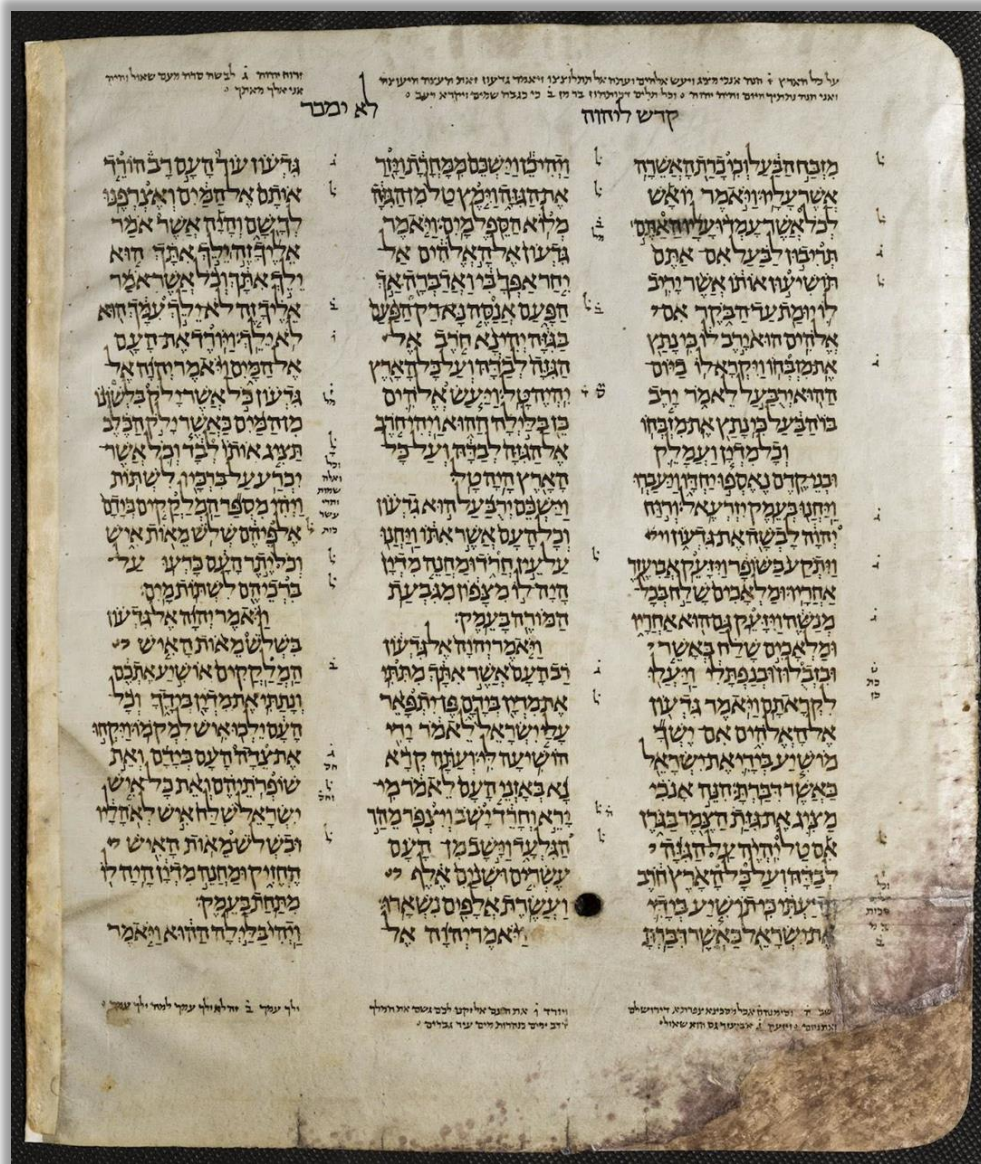 קדש ליהוה
לא ימכר
מזבח הבעל וכי כרת האשרה
אשר עליו ויאמר יואש
לכל אשר עמדו עליו האתם
תריבון לבעל אם אתם
תושיעון אותו אשר יריב
לו יומת עד הבקר אם
אלהים הוא ירב לו כי נתץ
את מזבחו ויקרא לו ביום
ההוא ירבעל לאמר ירב
בו הבעל כי נתץ את מזבחו
וכל מדין ועמלק
ובני קדם נאספו יחדו ויעברו
ויחנו בעמק יזרעאל ורוח
יהוה לבשה את גדעון
ויתקע בשופר ויזעק אביעזר
אחריו ומלאכים שלח בכל
מנשה ויזעק גם הוא אחריו
ומלאכים שלח באשר
ובזבלון ובנפתלי ויעלו
לקראתם ויאמר גדעון
אל האלהים אם ישך
מושיע בידי את ישראל
כאשר דברת הנה אנכי
מציג את גזת הצמר בגרן
אם טל יהיה על הגזה
לבדה ועל כל הארץ חרב
וידעתי כי תושיע בידי
את ישראל כאשר דברת
ויהי כן וישכם ממחרת ויזר
את הגזה וימץ טל מן הגזה
מלוא הספל מים ויאמר
גדעון אל האלהים אל
יחר אפך בי ואדברה אך
הפעם אנסה נא רק הפעם
בגזה יהי נא חרב אל
הגזה לבדה ועל כל הארץ
יהיה טל ויעש אלהים
כן בלילה ההוא ויהי חרב
אל הגזה לבדה ועל כל
הארץ היה טל
וישכם ירבעל הוא גדעון
וכל העם אשר אתו ויחנו
על עין חרד ומחנה מדין
היה לו מצפון מגבעת
המורה בעמק
ויאמר יהוה אל גדעון
רב העם אשר אתך מתתי
את מדין בידם פן יתפאר
עלי ישראל לאמר ידי
הושיעה לי ועתה קרא
נא באזני העם לאמר מי
ירא וחרד ישב ויצפר מהר
הגלעד וישב מן העם
עשרים ושנים אלף
ועשרת אלפים נשארו
ויאמר יהוה אל
גדעון עוד העם רב הורד
אותם אל המים ואצרפנו
לך שם והיה אשר אמר
אליך זה ילך אתך הוא
ילך אתך וכל אשר אמר
אליך זה לא ילך עמך הוא
לא ילך ויורד את העם
אל המים ויאמר יהוה אל
גדעון כל אשר ילק בלשונו
מן המים כאשר ילק הכלב
תציג אותו לבד וכל אשר
יכרע על ברכיו לשתות
ויהי מספר המלקקים בידם
אל פיהם שלש מאות איש
וכל יתר העם כרעו על
ברכיהם לשתות מים
ויאמר יהוה אל גדעון
בשלש מאות האיש
המלקקים אושיע אתכם
ונתתי את מדין בידך וכל
העם ילכו איש למקמו ויקחו
את צדה העם בידם ואת
שופרתיהם ואת כל איש
ישראל שלח איש לאהליו
ובשלש מאות האיש
החזיק ומחנה מדין היה לו
מתחת בעמק
ויהי בלילה ההוא ויאמר